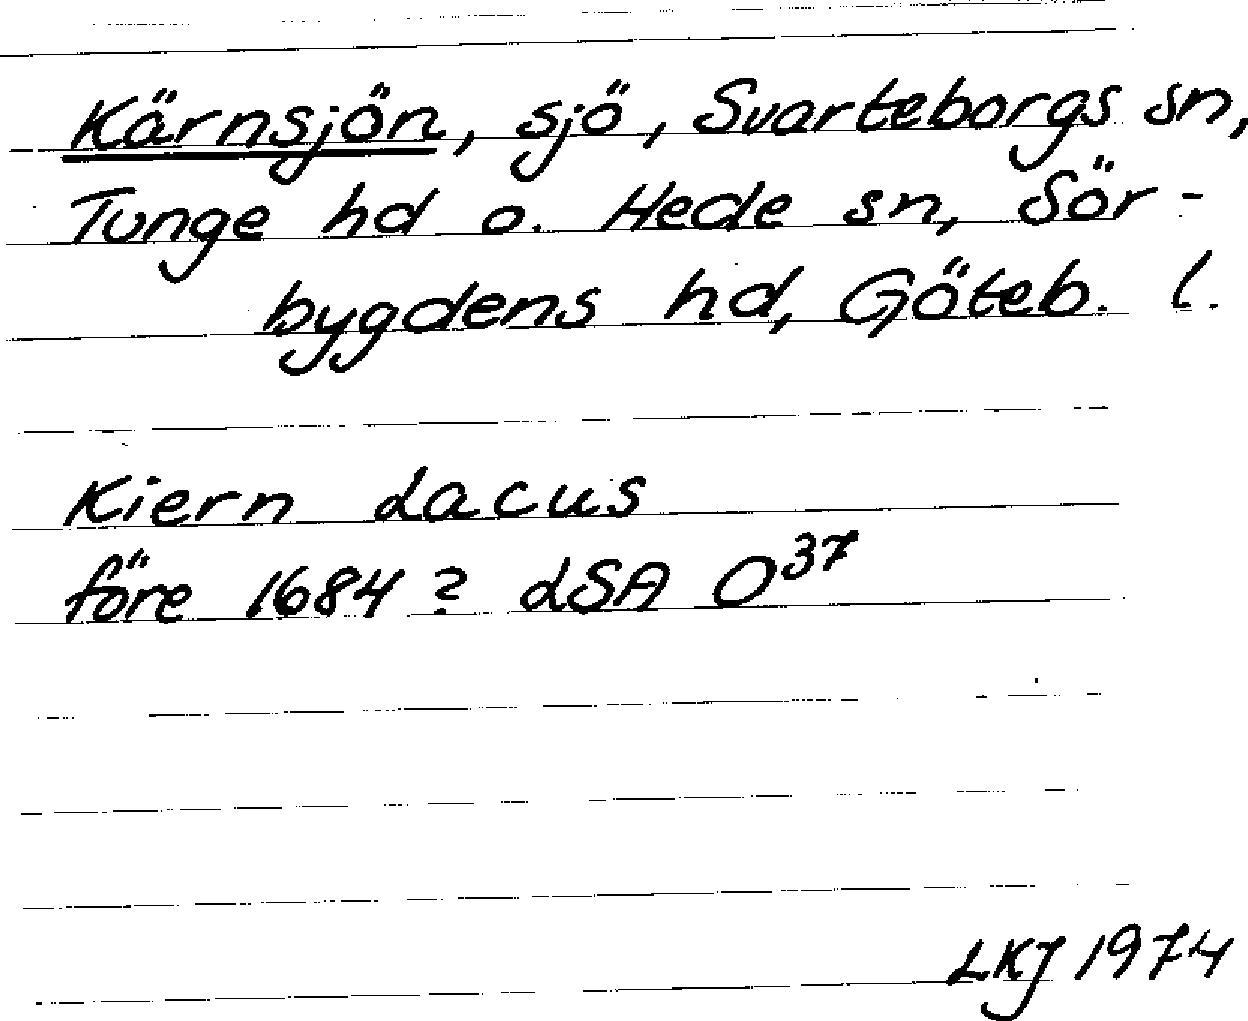 Kärnsjön, sjö, Svarteborgs sn,
Tunge hd o. Hede sn, Sör-
bygdens hd, Göteb. l.
Kiern Lacus
före 1684? LSA O37
LKJ 1974